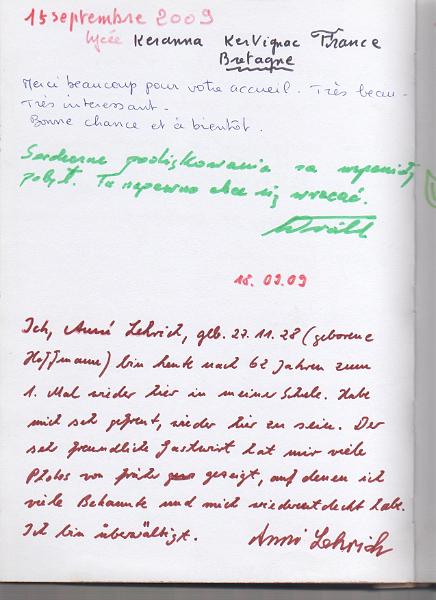 15 septembre 2009
lycée Keranna KerVignac France
Bretagne
Merci beaucoup pour votre accueil. Très beau -
Très intéressant.
Bonne chance et à bientôt.
Serdeczne podziękowania za wspaniały
pobyt. Tu napewno chce się wracać.
18.09.09
Ich, Anni Lehrich, geb. 27.11.28 (geborene
Hoffmann) bin heute nach 62 Jahren zum
1. Mal wieder hier in meiner Schule. Habe
mich seh gefreut, wieder hier zu sein. Der
sehr freundliche Gastwirt hat mir viele
Photos von früher gezeigt, auf denen ich
viele Bekannte und mich wiederentdeckt habe.
Ich bin überwältigt. Anni Lehrich